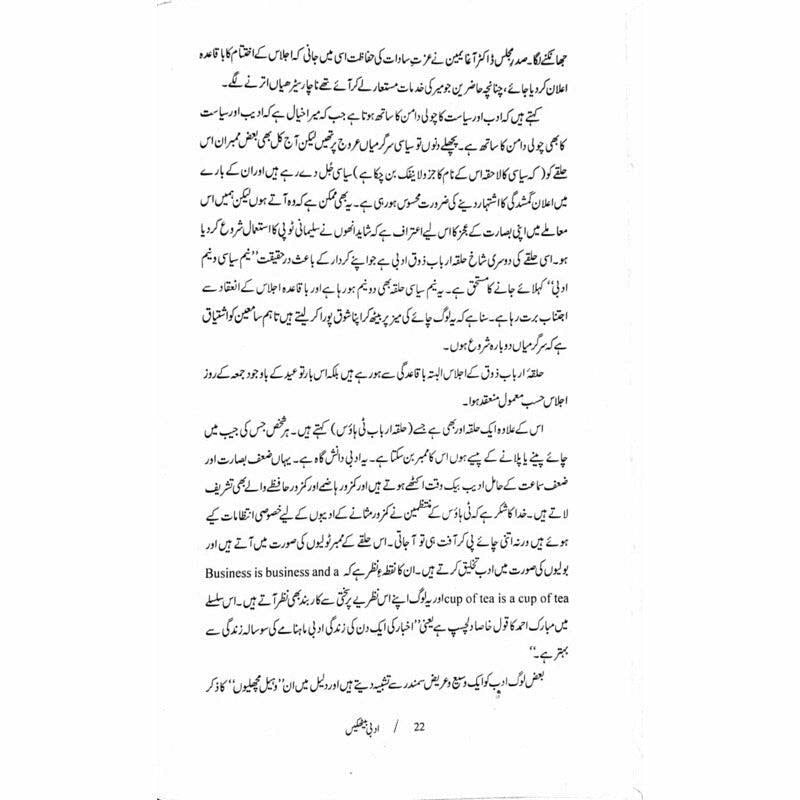 جھانکنے لگا۔ صدر مجلس ڈاکٹر آغا یمین نے عزتِ سادات کی حفاظت اسی میں جانی کہ اجلاس کے اختتام کا باقاعدہ
اعلان کر دیا جائے، چنانچہ حاضرین جو میر کی خدمات مستعار لے کر آئے تھے ناچار سیڑھیاں اترنے لگے۔
کہتے ہیں کہ ادب اور سیاست کا چولی دامن کا ساتھ ہوتا ہے جب کہ میرا خیال ہے کہ ادیب اور سیاست
کا بھی چولی دامن کا ساتھ ہے۔ پچھلے دنوں تو سیاسی سرگرمیاں عروج پر تھیں لیکن آج کل بھی بعض ممبران اس
حلقے کو (کہ سیاسی کا لاحقہ اس کے نام کا جزو لاینفک بن چکا ہے) سیاسی جُل دے رہے ہیں اور ان کے بارے
میں اعلان گمشدگی کا اشتہار دینے کی ضرورت محسوس ہو رہی ہے۔ یہ بھی ممکن ہے کہ وہ آتے ہوں لیکن ہمیں اس
معاملے میں اپنی بصارت کے عجز کا اس لیے اعتراف ہے کہ شاید انھوں نے سلیمانی ٹوپی کا استعمال شروع کر دیا
ہو۔ اسی حلقے کی دوسری شاخ حلقہ ارباب ذوق ادبی ہے جو اپنے کردار کے باعث درحقیقت ’’نیم سیاسی و نیم
ادبی‘‘ کہلائے جانے کا مستحق ہے۔ یہ نیم سیاسی حلقہ بھی دو نیم ہو رہا ہے اور باقاعدہ اجلاس کے انعقاد سے
اجتناب برت رہا ہے۔ سنا ہے کہ یہ لوگ چائے کی میز پر بیٹھ کر اپنا شوق پورا کر لیتے ہیں تاہم سامعین کو اشتیاق
ہے کہ سرگرمیاں دوبارہ شروع ہوں۔
حلقۂ ارباب ذوق کے اجلاس البتہ باقاعدگی سے ہو رہے ہیں بلکہ اس بار تو عید کے باوجود جمعہ کے روز
اجلاس حسب معمول منعقد ہوا۔
اس کے علاوہ ایک حلقہ اور بھی ہے جسے (حلقہ ارباب ٹی ہاؤس) کہتے ہیں۔ ہر شخص جس کی جیب میں
چائے پینے یا پلانے کے پیسے ہوں اس کا ممبر بن سکتا ہے۔ یہ ادبی دانش گاہ ہے۔ یہاں ضعف بصارت اور
ضعف سماعت کے حامل ادیب بیک وقت اکٹھے ہوتے ہیں اور کمزور ہاضمے اور کمزور حافظے والے بھی تشریف
لاتے ہیں۔ خدا کا شکر ہے کہ ٹی ہاؤس کے منتظمین نے کمزور مثانے کے ادیبوں کے لیے خصوصی انتظامات کیے
ہوئے ہیں ورنہ اتنی چائے پی کر آفت ہی تو آ جاتی۔ اس حلقے کے ممبر ٹولیوں کی صورت میں آتے ہیں اور
بولیوں کی صورت میں ادب تخلیق کرتے ہیں۔ ان کا نقطۂ نظر ہے کہ Business is business and a
cup of tea is a cup of tea اور یہ لوگ اپنے اس نظریے پر سختی سے کار بند بھی نظر آتے ہیں۔ اس سلسلے
میں مبارک احمد کا قول خاصا دلچسپ ہے یعنی ’’اخبار کی ایک دن کی زندگی ادبی ماہنامے کی سو سالہ زندگی سے
بہتر ہے۔‘‘
بعض لوگ ادب کو ایک وسیع و عریض سمندر سے تشبیہ دیتے ہیں اور دلیل میں ان ’’وہیل مچھلیوں‘‘ کا ذکر
22 / ادبی بیٹھکیں